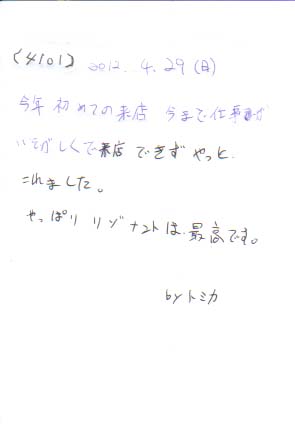 (4101) 2012. 4. 29 (日)
今年初めての来店 今まで仕事が
いそがしくで来店できずやっと
これました。
やっぱりリゾナントは最高です。
by トミカ